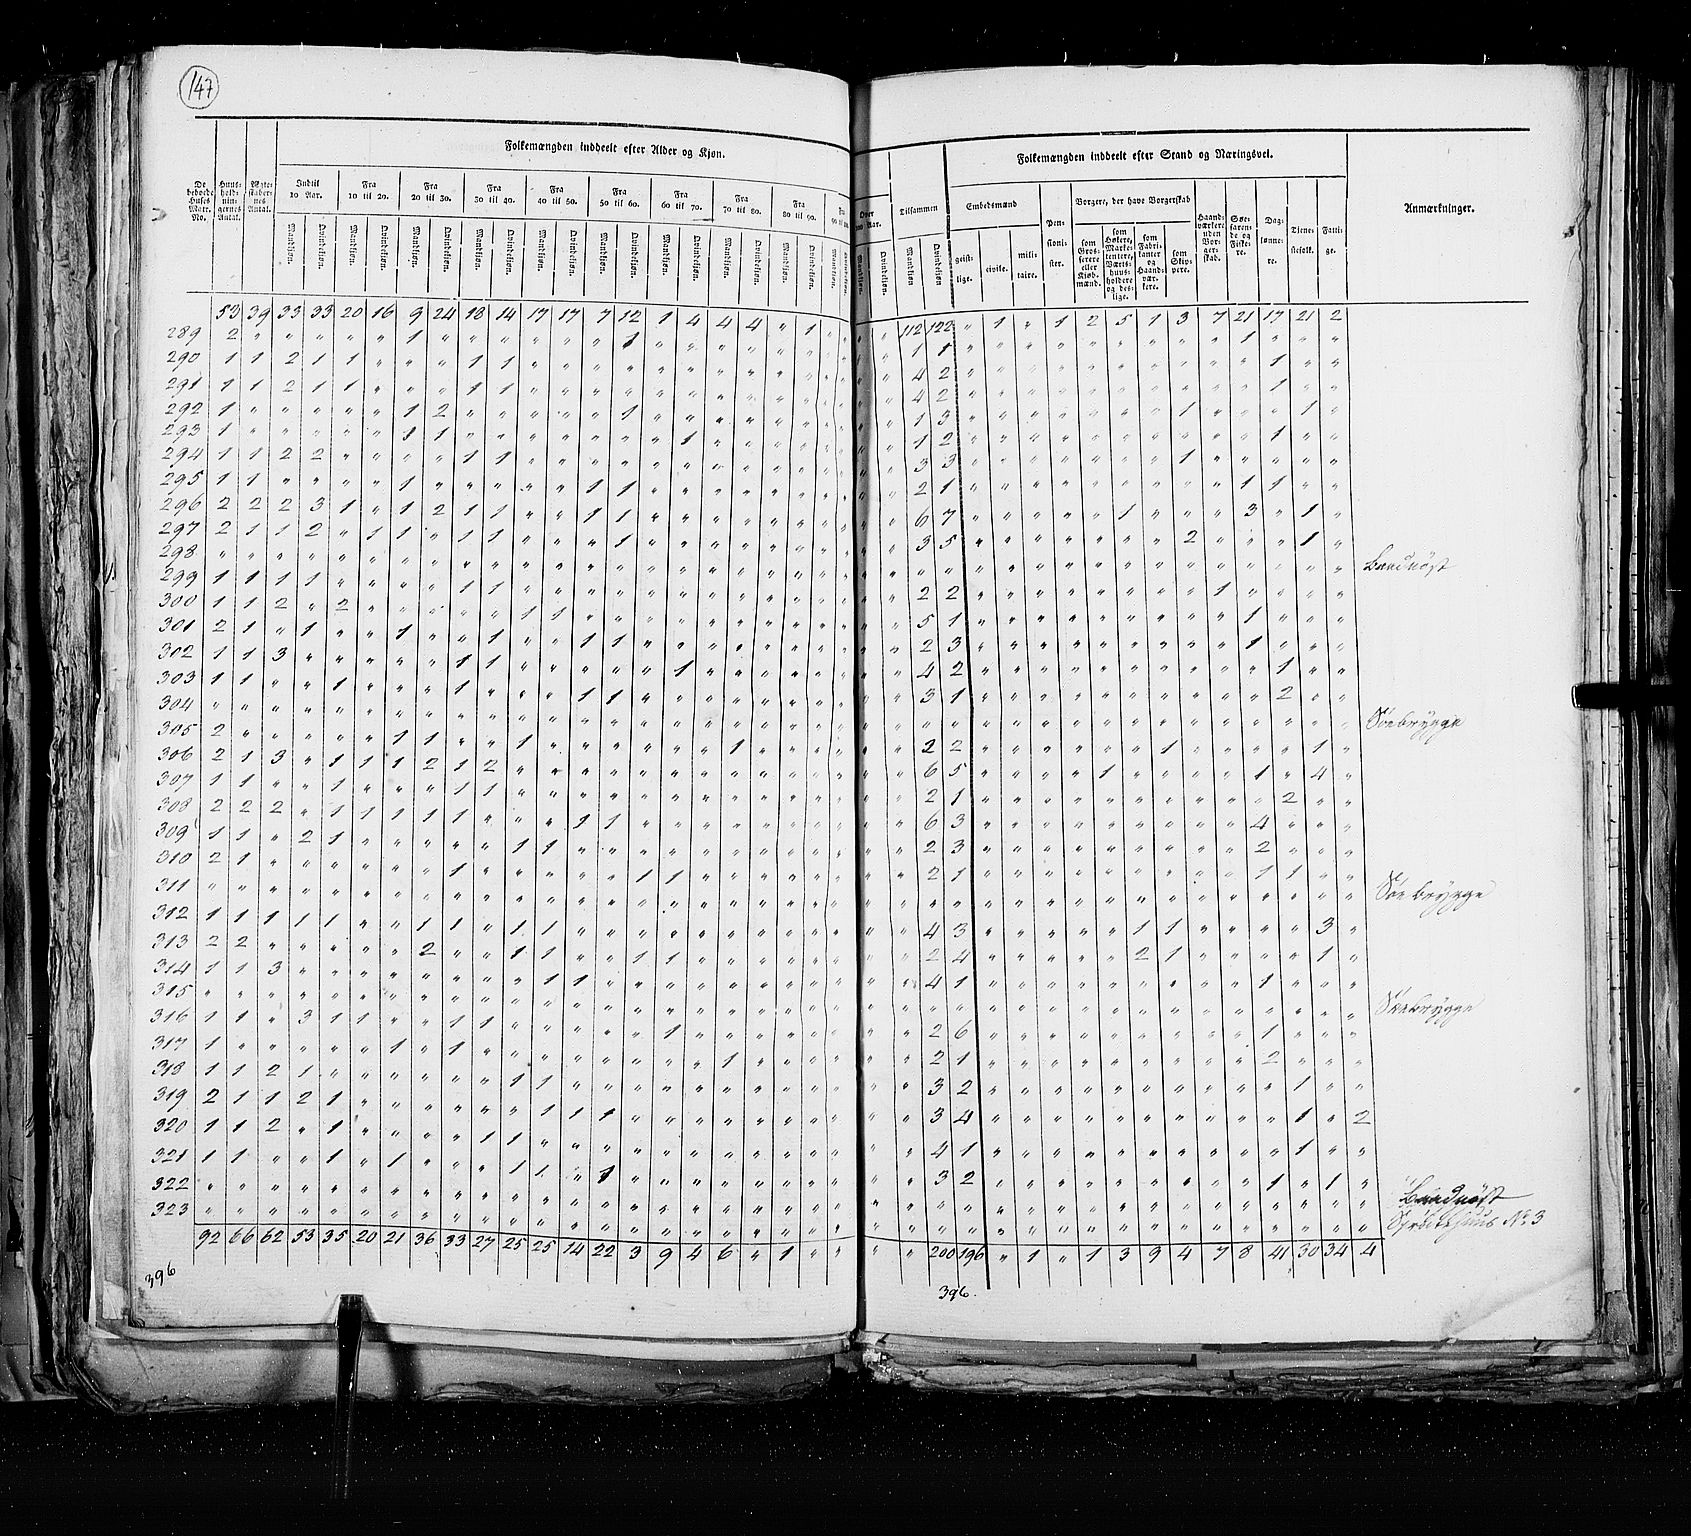 147
Folkemængden inddeelt efter Alder og Kjøn.
Folkemængden inddeelt efter Stand og Næringsvei.
De beboede Huses Matr. No.
Huus- hold- nin- gernes Antal.
Ægte- skaber- nes Antal.
Indtil 10 Aar.
Fra 10 til 20.
Fra 20 til 30.
Fra 30 til 40.
Fra 40 til 50.
Fra 50 til 60.
Fra 60 til 70.
Fra 70 til 80.
Fra 80 til 90.
Over 100 Aar.
Tilsammen
Mandkjøn. Qvindekjøn.
Embedsmænd
geist- lige. civile. mili- taire.
Pen- sioni- ster.
Borgere, der have Borgerskab
som Gros- serere eller Kjøb- mænd.
som Høkere, Marke- tentere, Værts- huus- holdere og des- lige.
som Fabri- kanter og Haand- vær- kere.
som Skip- pere.
Haand- værkere uden Bor- ger- skab.
Søe- faren- de og Fiske- re.
Dag- lønne- re.
Tjene- stefolk.
Fatti- ge.
Anmærkninger.
53 39 33 33 20 16 9 24 18 14 17 17 7 12 1 4 4 4 " 1 " " " 112 122 " 1 " 1 2 5 1 3 7 21 17 21 2
289 2 1 1 1 1 1
290 1 1 2 1 1 1 1 4 2 1
291 1 1 2 1 1 1 1 4 2 1
292 1 1 2 1 1 3 1 1
293 1 1 1 1 1 2 1
294 1 1 2 2 1 1 3 3 1
295 1 1 1 1 1 2 1 1 1
296 2 2 2 3 1 " 1 2 1 1 " " 1 1 6 7 1 3 1
297 2 1 1 2 " 1 1 " 1 1 1 3 5 2 1
298 Baadnøst
299 1 1 1 1 1 1 2 2 1
300 1 1 2 " 2 1 1 5 1 1
301 2 1 " 1 1 1 1 1 2 3 1
302 1 1 3 1 1 1 4 2 1
303 1 1 1 1 1 1 3 1 2
304 Søebrygge
305 2 1 1 1 1 2 2 1 1
306 2 1 3 " 1 1 1 2 1 2 6 5 1 1 4
307 1 1 1 1 1 2 1 2
308 2 2 2 " 1 1 1 1 1 1 1 6 3 4
309 1 1 " 2 1 1 1 2 3 2
310 2 1 1 1 1 2 1 1 1
311 Søebrygge
312 1 1 1 1 1 " " 1 1 " 1 1 4 3 1 1 3
313 2 2 2 1 1 1 1 2 4 2 1 1
314 1 1 3 1 1 4 1 1
315 Søebrygge
316 1 1 " 3 1 1 1 1 1 2 6 1
317 1 1 1 1 2 1 2
318 1 1 2 1 1 1 3 2 1
319 2 1 1 2 1 1 1 1 3 4 1 " 2
320 1 1 2 " 1 1 1 4 1 1
321 1 1 1 " 1 1 1 " 1 3 2 1 " 1
322 Baadnøst
323 Sprøitehuus No 3
92 66 62 53 35 20 21 36 33 27 25 25 14 22 3 9 4 6 " 1 " " " " 200 196 " 1 " 1 3 9 4 7 8 41 30 34 4
396
396.